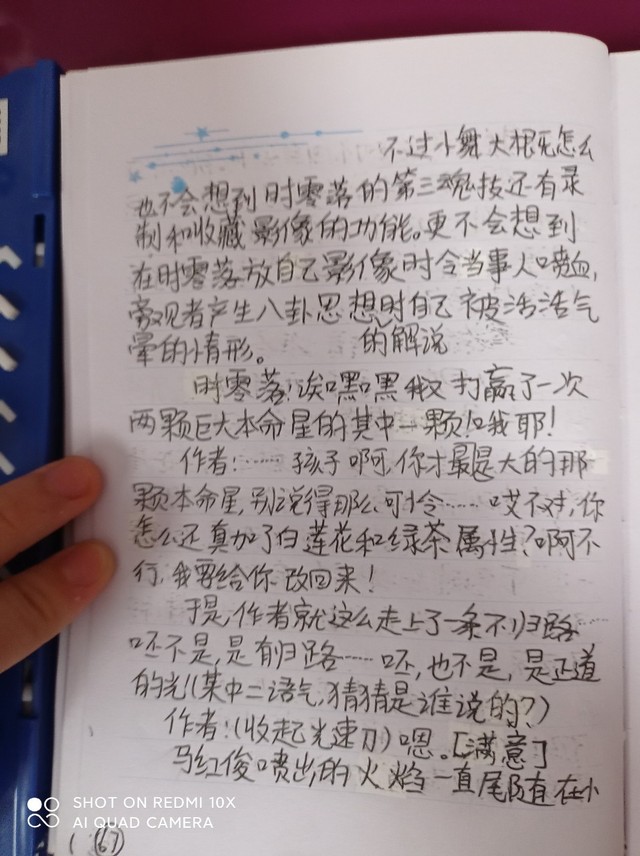 不过小舞大概死怎么
也不会想到时零落的第三魂技还有录
制和收藏影像的功能。更不会想到
在时零落放自己影像时令当事人喷血,
旁观者产生八卦思想时自己被活活气
晕的情形。 的解说
时零落:诶嘿嘿我又打赢了一次
两颗巨大本命星的其中一颗!哦耶!
作者:……孩子啊,你才是最大的那
颗本命星,别说得那么可怜……哎不对,你
怎么还真加了白莲花和绿茶属性?啊不
行,我要给你改回来!
于是,作者就这么走上了一条不归路……
呸不是,是有归路……呸,也不是,是正道
的光!(某中二语气,猜猜是谁说的?)
作者:(收起光速刀)嗯。[满意]
马红俊喷出的火焰一直尾随在小
SHOT ON REDMI 10X
AI QUAD CAMERA
(67)